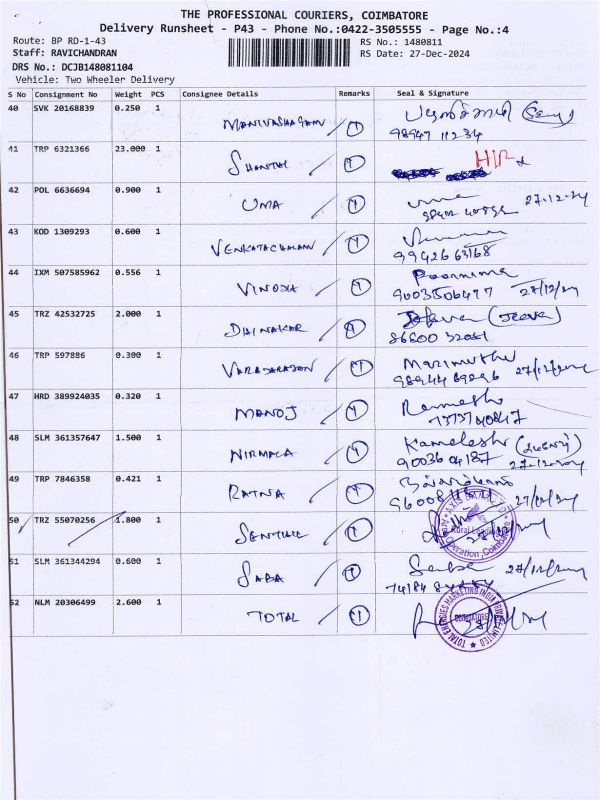 THE PROFESSIONAL COURIERS, COIMBATORE
Delivery Runsheet - P43 - Phone No.:0422-3505555 - Page No.:4
Route: BP RD-1-43 RS No.: 1480811
Staff: RAVICHANDRAN RS Date: 27-Dec-2024
DRS No.: DCJB148081104
Vehicle: Two Wheeler Delivery
S No Consignment No Weight PCS Consignee Details Remarks Seal & Signature
40 SVK 20168839 0.250 1 MANIVASHAGAM 1
98947 11234
41 TRP 6321366 23.000 1 SHANTHI 1 H/R
42 POL 6636694 0.900 1 UMA 1 27-12-24
43 KOD 1309293 0.600 1 VENKATACHALAM 1
99426 63168
44 IXM 507585962 0.556 1 VINODH 1 Poornima
9003506477 27/12/24
45 TRZ 42532725 2.000 1 DHINAKAR 1
86800 32081
46 TRP 597886 0.300 1 VARADARAJAN 1 Marimuthu
27/12/24
47 HRD 389924035 0.320 1 MANOJ 1 Ramesh
48 SLM 361357647 1.500 1 NIRMALA 1 Kamalesh
9003604187 27-12-24
49 TRP 7846358 0.421 1 RATNA 1
50 TRZ 55070256 1.800 SENTHIL 1
51 SLM 361344294 0.600 1 SABA 1 27/12/24
52 NLM 20306499 2.600 1 TOTAL 1
TOTAL ENERGIES MARKETING INDIA PRIVATE LIMITED
COIMBATORE